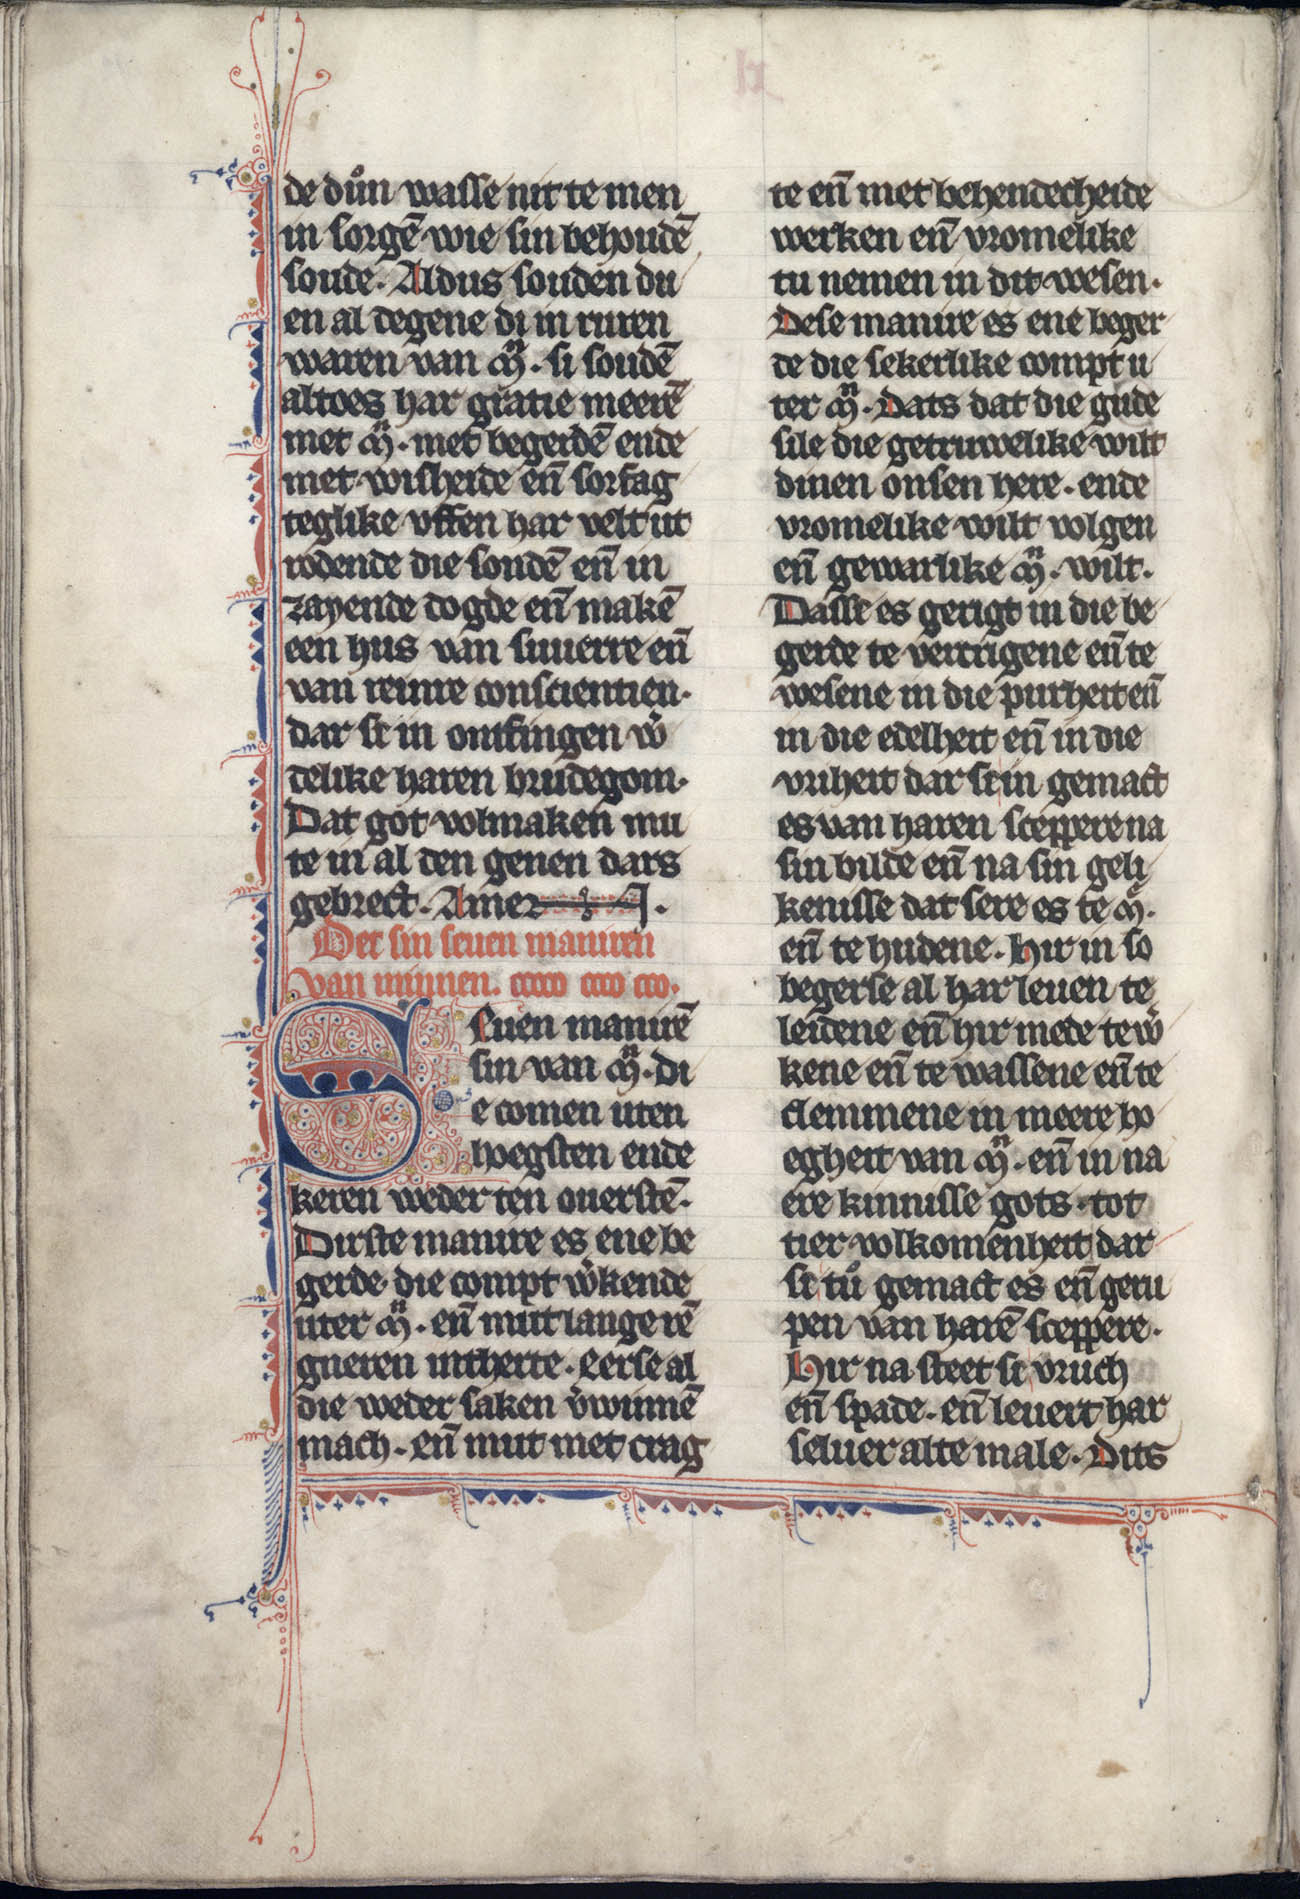 de důn wasse nit te men
in sorgē wie sin behoudē
soude. Aldus souden du
en al degene di in ruren
waren van m̄. si soudē
altoes har gratie meerē
met m̄. met begerdē ende
met wisheide eñ sorfag
teglike uffen har velt ut
rodende die sondē eñ in
zayende dogde eñ makē
een hus van suuerre eñ
van reinre conscientien.
dar si in ontfingen w̄
delike haren brudegom.
Dat got volmaken mu
te in al den genen dars
gebrect. Amen.
Det sin seuen maniren
van minnen.
Seuen manirē
sin van m̄. di
e comen uten
hoegsten ende
keren weder ten ouerstē.
Dirste manire es ene be
gerde die compt w̄kende
uter m̄. eñ mut lange rē
gneren int herte. eerse al
die weder saken v̄winnē
mach. eñ mut met crag
te eñ met behendecheide
werken eñ vromelike
tu nemen in dit wesen.
Dese manire es ene beger
de die sekerlike compt u
ter m̄. Dats dat die gude
sile die getruwelike wilt
dinen onsen here. ende
vromelike wilt volgen
eñ gewarlike m̄. wilt.
Dasse es gerigt in die be
gerde te vercrigene eñ te
wesene in die purheit eñ
in die edelheit eñ in die
vriheit dar si in gemact
es van haren sceppere na
sin bilde eñ na sin geli
kenisse dat sere es te m̄.
eñ te hudene. Hir in so
begerse al har leuen te
leidene eñ hir mede te w̄
kene eñ te wassene eñ te
clemmene in meere ho
egheit van m̄. eñ in na
ere kinnisse gots. tot
tier volkomenheit dar
si tů gemact es eñ geru
pen van harē sceppere.
Hir na steet si vruch
eñ spade. eñ leuert har
seluer alte male. Dits